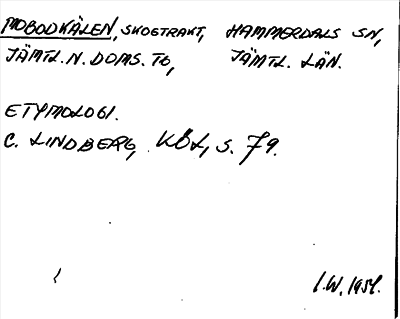 MOBODKÄLEN, SKOGTRAKT, HAMMERDALS SN,
JÄMTL. N. DOMS. TG, JÄMTL. LÄN.
ETYMOLOGI.
C. LINDBERG, KÖL, S. 79.
I.W. 1954.